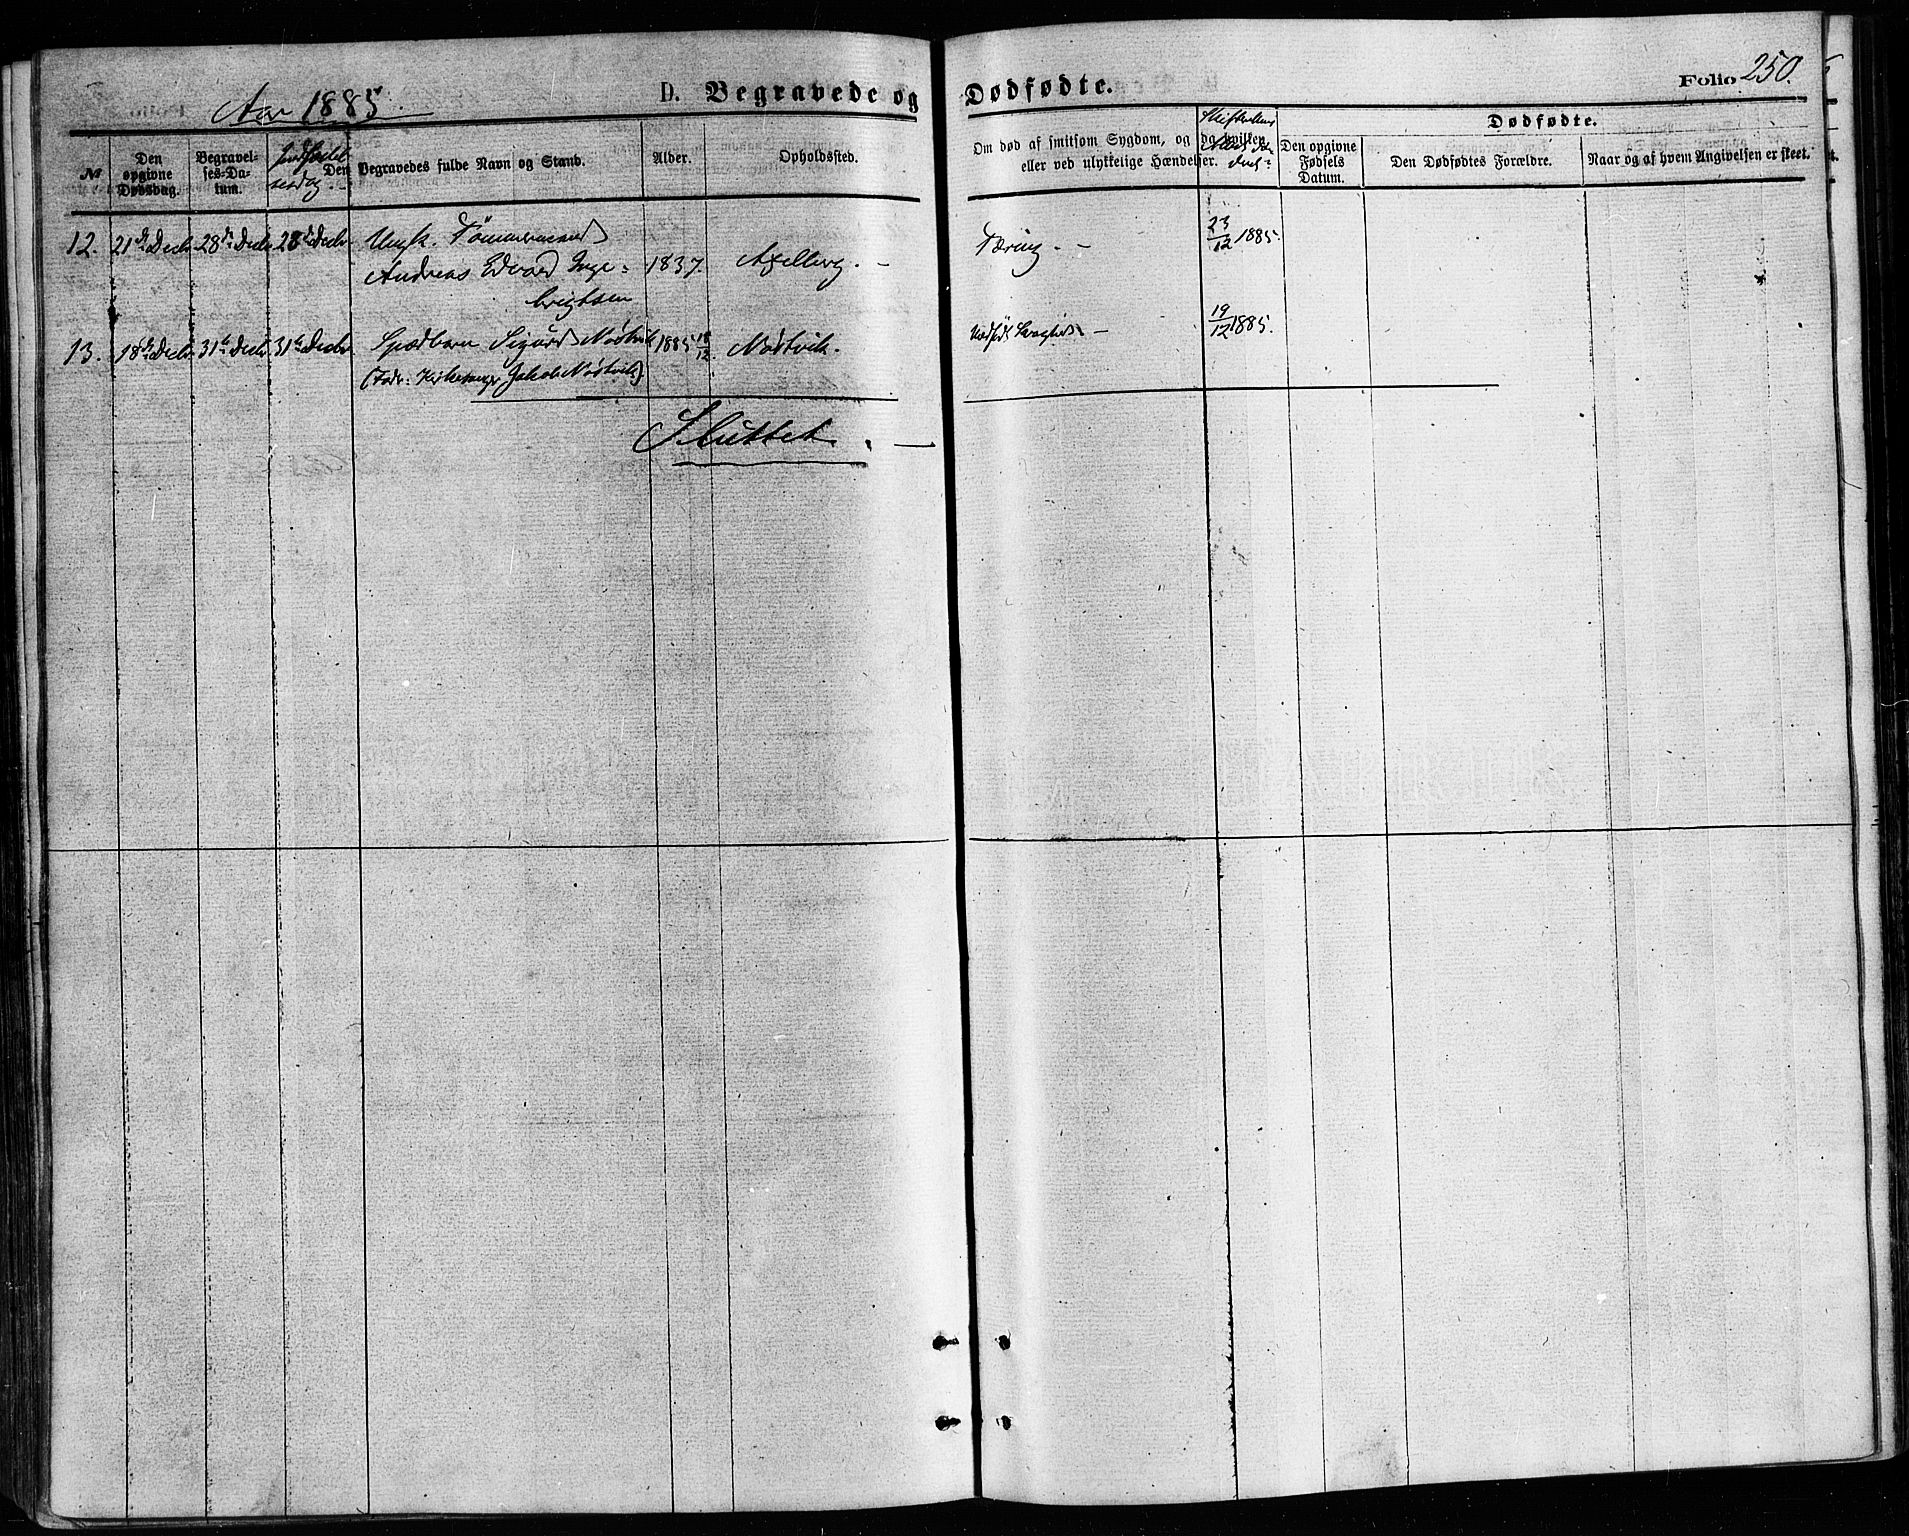 Aar 1885.
D. Begravede og Dødfødte.
Folio 250.
№
Den opgivne Dødsdag.
Begravelses-Datum.
Jordfæstelsesdag.
Den
Begravedes fulde Navn og Stand.
Alder.
Opholdssted.
Om død af smitsom Sygdom, og hvilken,
eller ved ulykkelige Hændelser.
Dødfødte.
Den opgivne Fødsels Datum.
Den Dødfødtes Forældre.
Naar og af hvem Angivelsen er skeet.
12. 21de Decbr 28de Decbr 28de Decbr Ungk. Tømmermand Tæring. — 23/12 1885.
Andreas Edvard Inge- 1837. Axelberg. —
brigtsen
13. 18de Decbr 31te Decbr 31te Decbr Spædbarn Sigurd Nøstvik 1885 18/12. Nøstvik. Medfødt Svaghed. — 19/12 1885.
(Fadr: Kirkesanger Jakob Nøstvik)
Sluttet. —